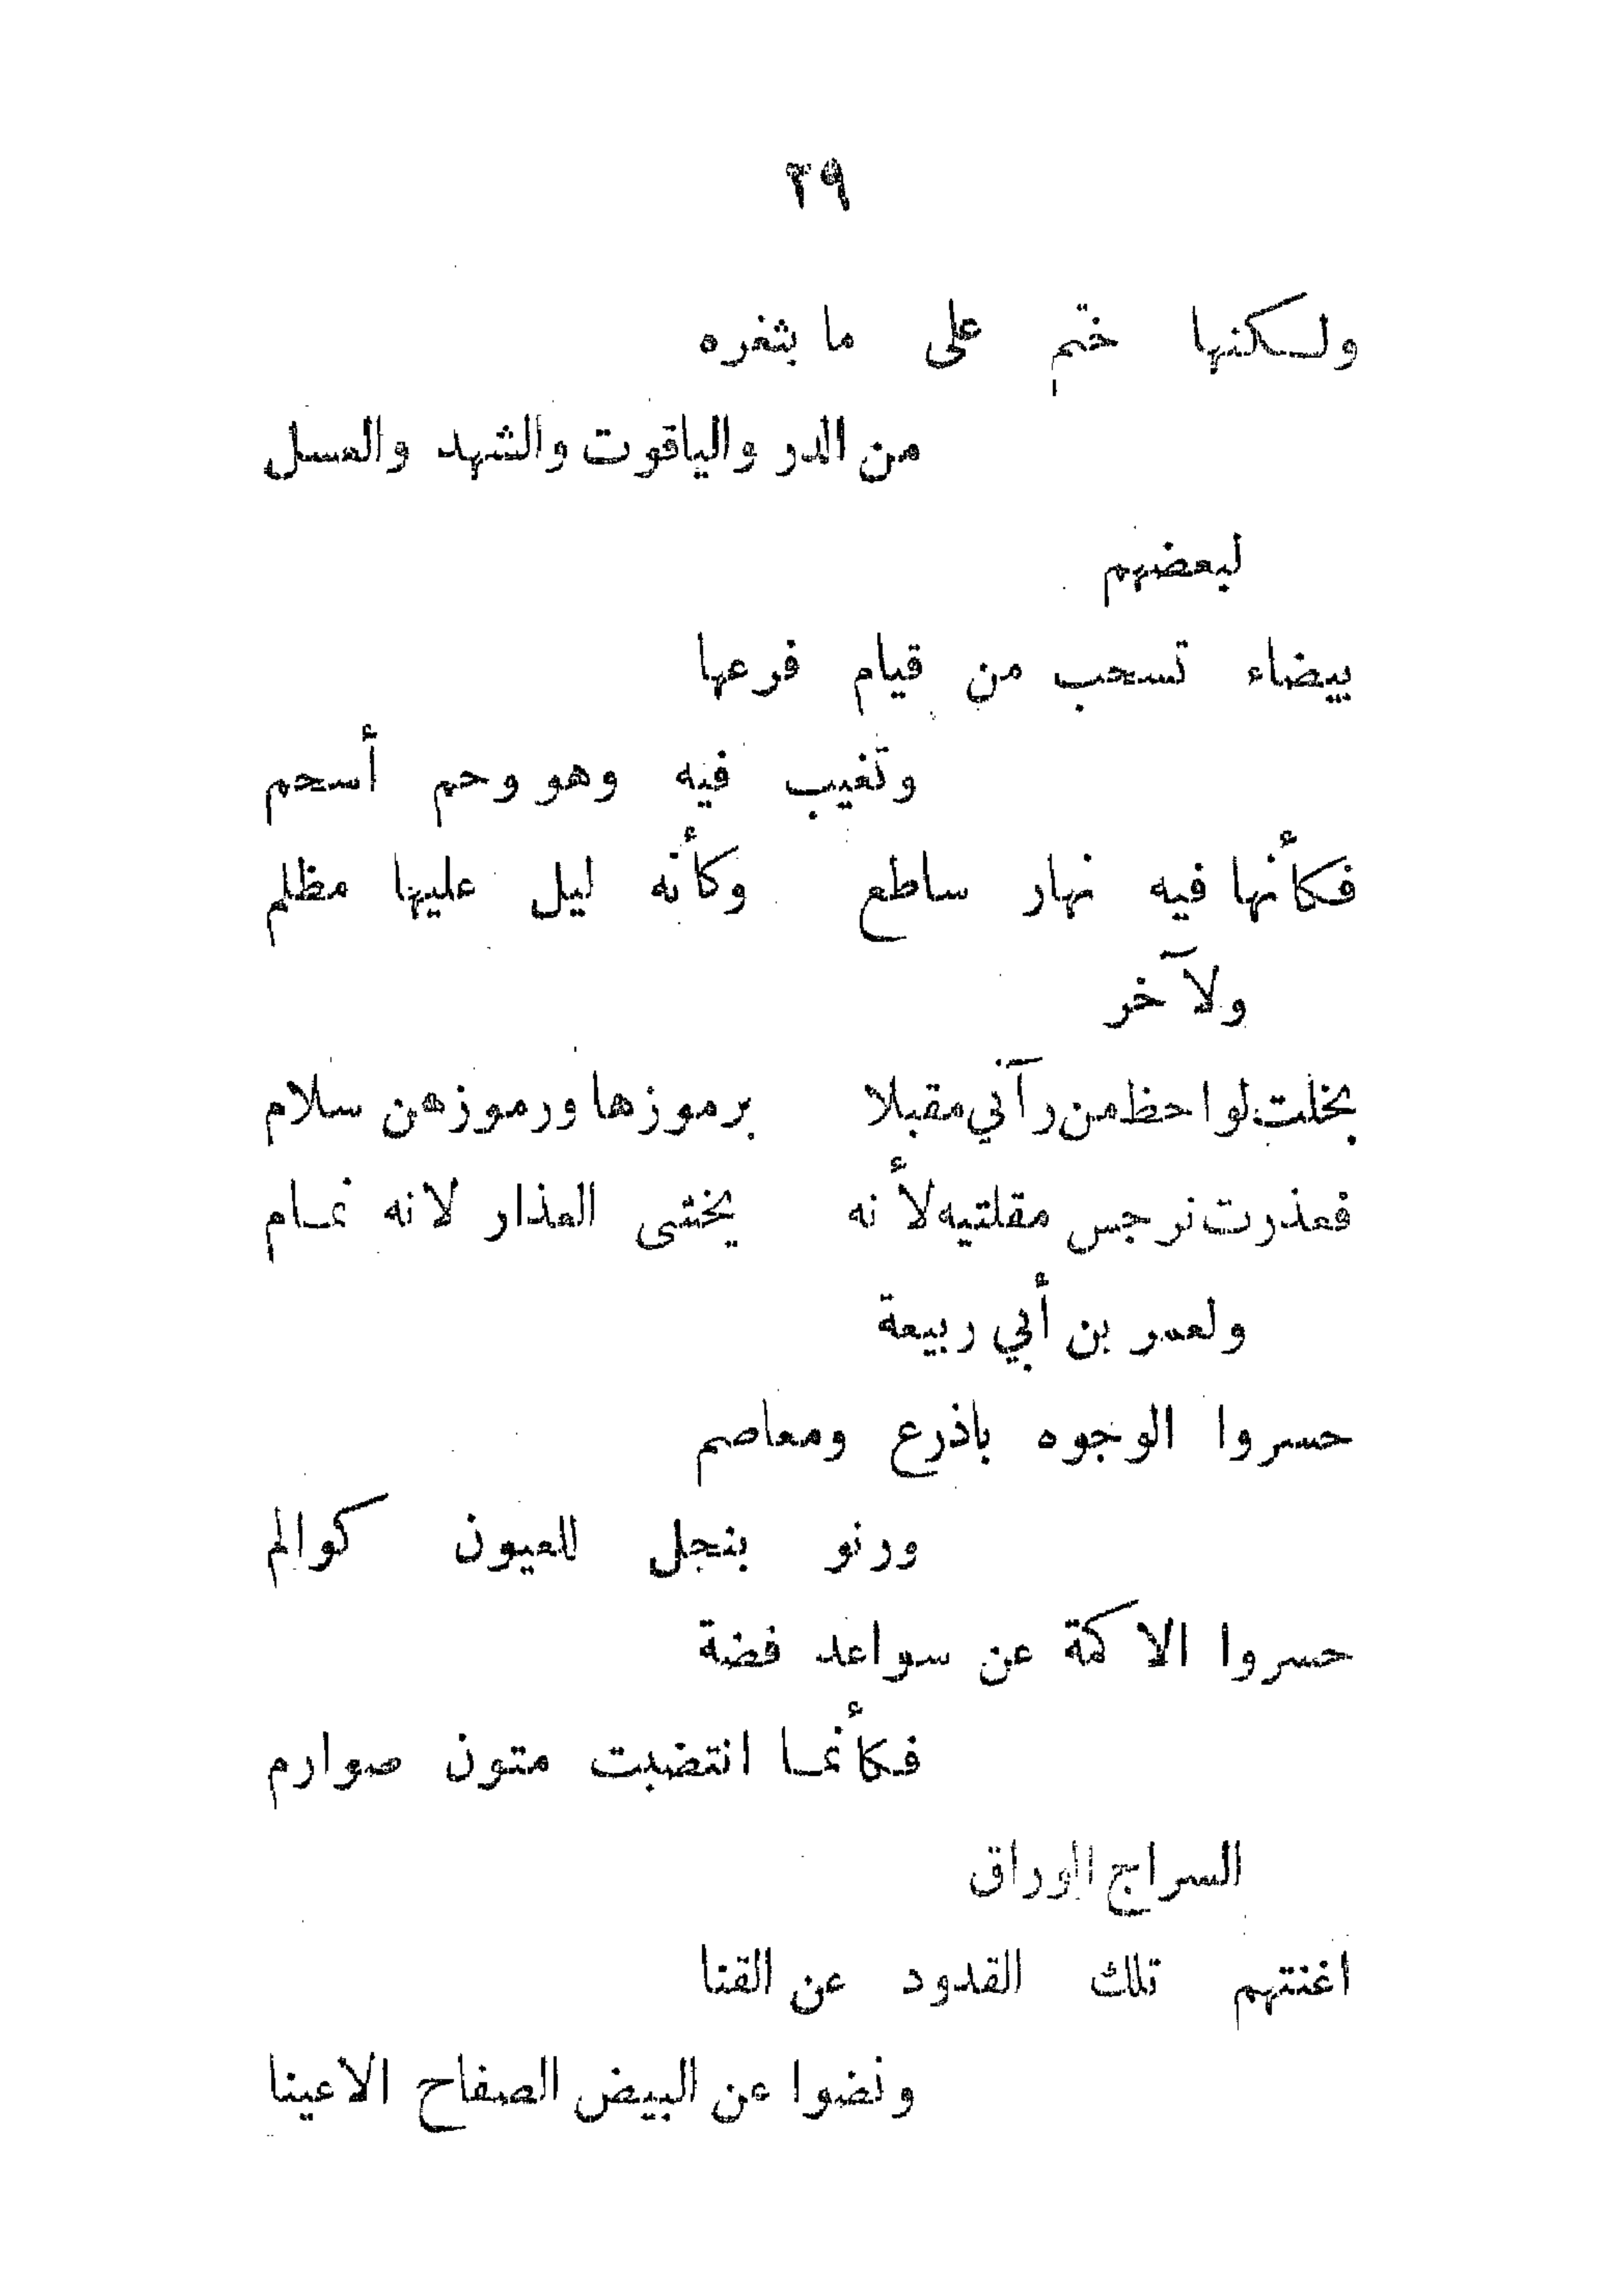 ٢٩
ولكنها ختم على ما بثغره
من الدر والياقوت والشهد والعسل
لبعضهم
بيضاء تسحب من قيام فرعها
وتغيب فيه وهو وحم أسحم
فكأنها فيه نهار ساطع وكأنه ليل عليها مظلم
ولآخر
بخلت لواحظ من رآني مقبلا برموزها ورموزهن سلام
فعذرت نرجس مقلتيه لأنه يخشى العذار لانه نمام
ولعمر بن أبي ربيعة
حسروا الوجوه باذرع ومعاصم
ورنو بنجل للعيون كوالم
حسروا الاكمة عن سواعد فضة
فكأنما انتضبت متون صوارم
السراج الوراق
اغنتهم تلك القدود عن القنا
ونضوا عن البيض الصفاح الاعينا